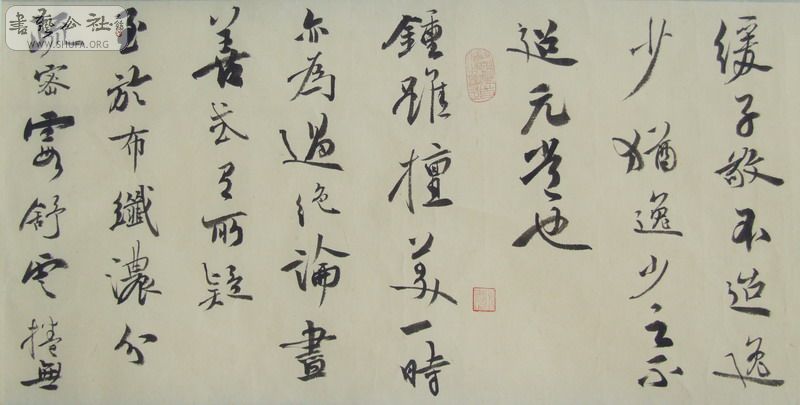 緩子敬不迨逸
少猶逸少之不
迨元常也
鍾雖擅美一時
亦為迥絶論盡
善或有所疑
至於布纖濃分
疏密霞舒雲捲無
書藝公社
WWW.SHUFA.ORG